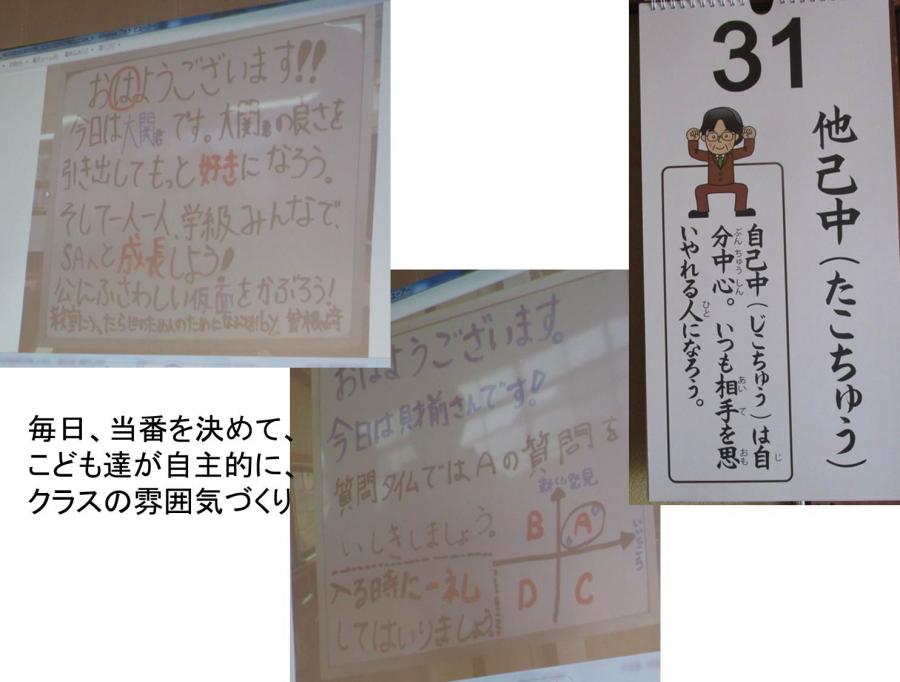 おはようございます!!
今日は大関君です。大関君の良さを
引き出してもっと好きになろう。
そして一人一人、学級みんなで、
SAへと成長しよう!
公にふさわしい仮面をかぶろう!
おはようございます。
今日は財前さんです!
質問タイムではAの質問を
いしきしましょう。
B A
D C
入る時に一礼
してはいりましょう。
31
他己中(たこちゅう)
自己中(じこちゅう)は自
分中心。いつも相手を思
いやれる人になろう。
毎日、当番を決めて、
こども達が自主的に、
クラスの雰囲気づくり